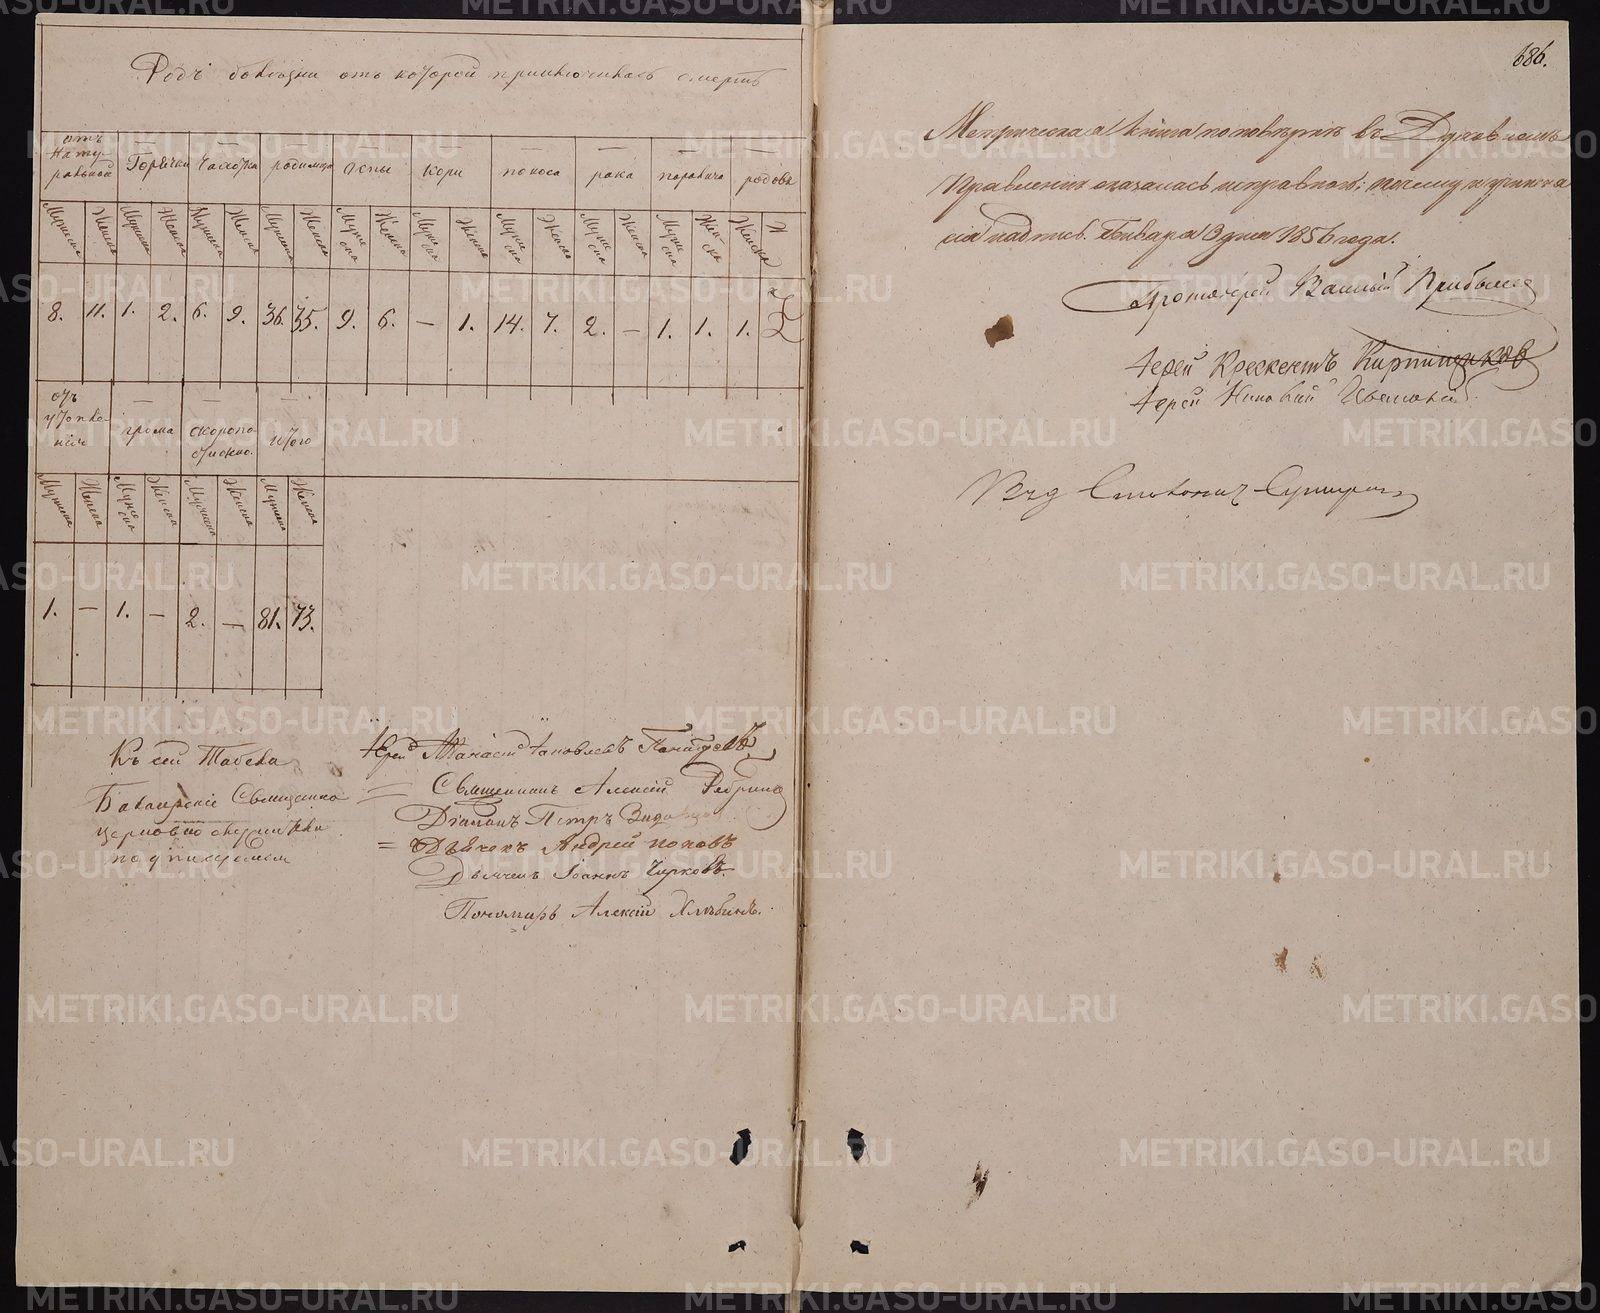 Родъ болѣзни отъ которой приключилась смерть
отъ натуральной | Горячки | чахотка | родимца | оспы | кори | поноса | рака | паралича | родовъ
Мужеска | Женска | Мужеска | Женска | Мужеска | Женска | Мужеска | Женска | Мужеска | Женска | Мужеска | Женска | Мужеска | Женска | Мужеска | Женска | Мужеска | Женска | Женска
8. | 11. | 1. | 2. | 6. | 9. | 36. | 35. | 9. | 6. | — | 1. | 14. | 7. | 2. | — | 1. | 1. | 1.
отъ утопленія | грома | скоропостижно. | итого
Мужеска | Женска | Мужеска | Женска | Мужеска | Женска | Мужеска | Женска
1. | — | 1. | — | 2. | — | 81. | 73.
Къ сей Табели
Священно
церковно служители
подписуемся
Іерей Іаковлевъ
Священникъ Алексій Ребринъ
Діаконъ Петръ
Дьячекъ Андрей Поповъ
Дьячекъ Іоаннъ Чирковъ.
Пономарь Алексій Хлѣбинъ.
686.
Метрическая книга по повѣркѣ въ Духовномъ
Правленіи оказалась исправною; почему и учинена
сія надпись. Генваря 3 дня 1856 года.
Протоіерей Василій
Іерей Крескентъ Кирпищиковъ
Іерей
METRIKI.GASO-URAL.RU